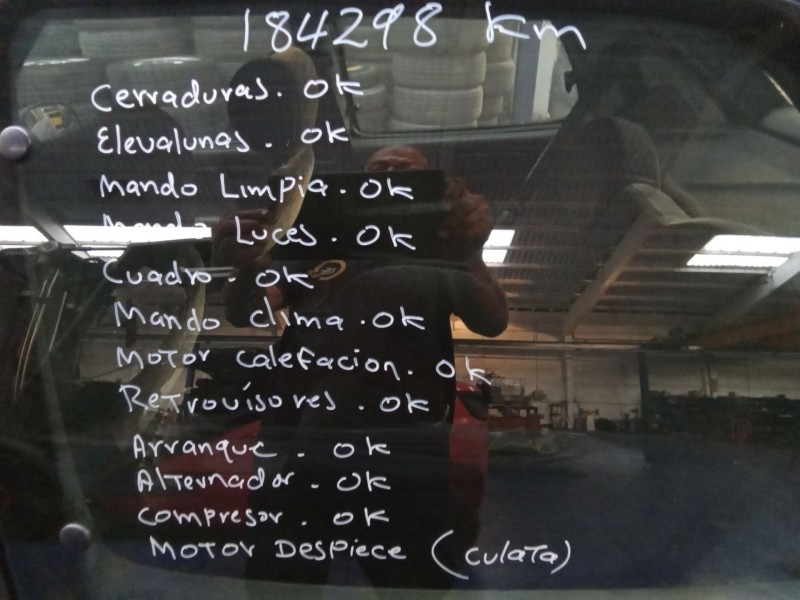 184298 km
Cerraduras. OK
Elevalunas. OK
Mando Limpia. OK
Mando Luces. OK
Cuadro. OK
Mando clima. OK
Motor calefacion. OK
Retrovisores. OK
Arranque. OK
Alternador. OK
Compresor. OK
MOTOR DESPIECE (culata)